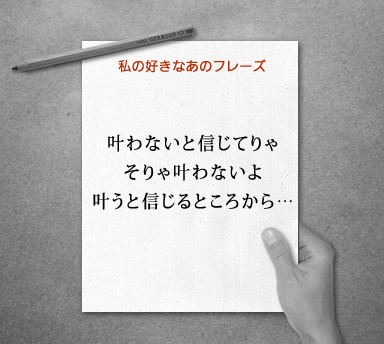 私の好きなあのフレーズ
叶わないと信じてりゃ
そりゃ叶わないよ
叶うと信じるところから…